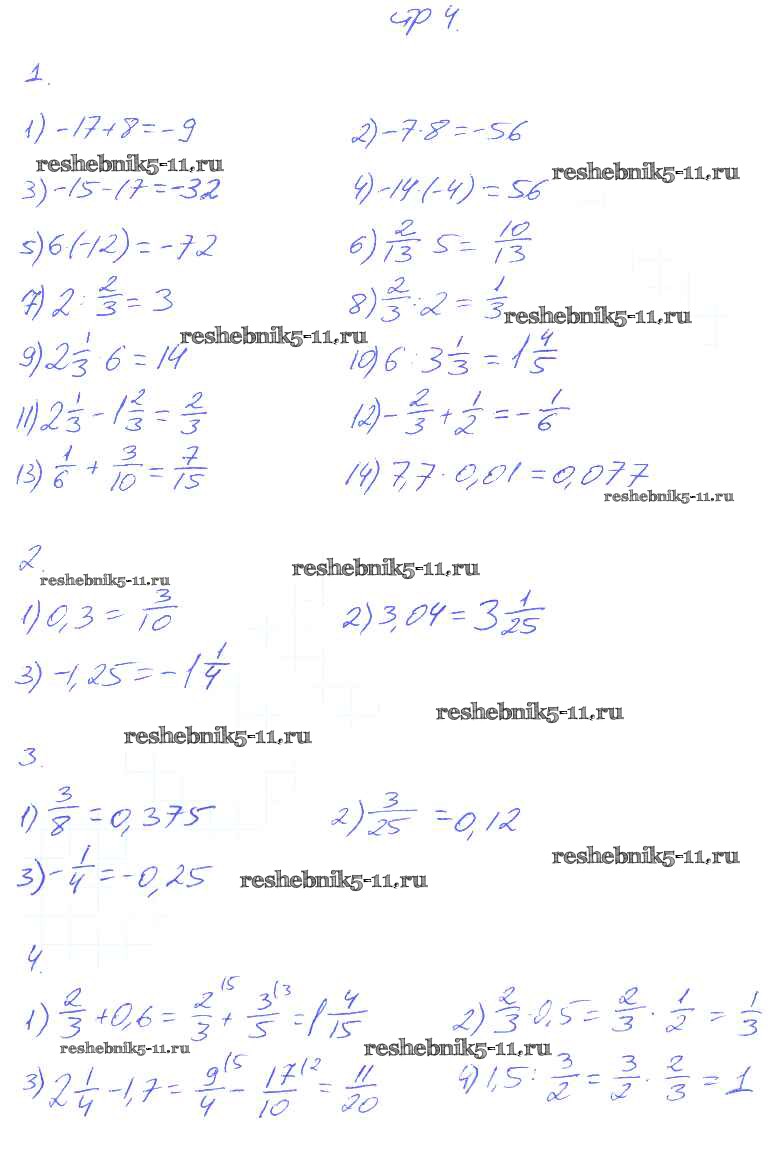 стр 4.
1.
1) -17+8=-9 2) -7·8=-56
reshebnik5-11.ru reshebnik5-11.ru
3) -15-17=-32 4) -14·(-4)=56
5) 6·(-12)=-72 6) 2/13 5= 10/13
7) 2: 2/3=3 8) 2/3:2=1/3
reshebnik5-11.ru reshebnik5-11.ru
9) 2 1/3·6=14 10) 6:3 1/3=1 4/5
11) 2 1/3-1 2/3=2/3 12) -2/3+1/2=-1/6
13) 1/6+3/10=7/15 14) 7,7·0,01=0,077
reshebnik5-11.ru
2.
reshebnik5-11.ru reshebnik5-11.ru
1) 0,3=3/10 2) 3,04=3 1/25
3) -1,25=-1 1/4
reshebnik5-11.ru reshebnik5-11.ru
3.
1) 3/8=0,375 2) 3/25=0,12
3) -1/4=-0,25 reshebnik5-11.ru reshebnik5-11.ru
4.
1) 2/3+0,6=2/3 (5+3/5 (3=1 4/15 2) 2/3·0,5=2/3·1/2=1/3
reshebnik5-11.ru reshebnik5-11.ru
3) 2 1/4-1,7=9/4 (5-17/10 (2=11/20 4) 1,5:3/2=3/2·2/3=1